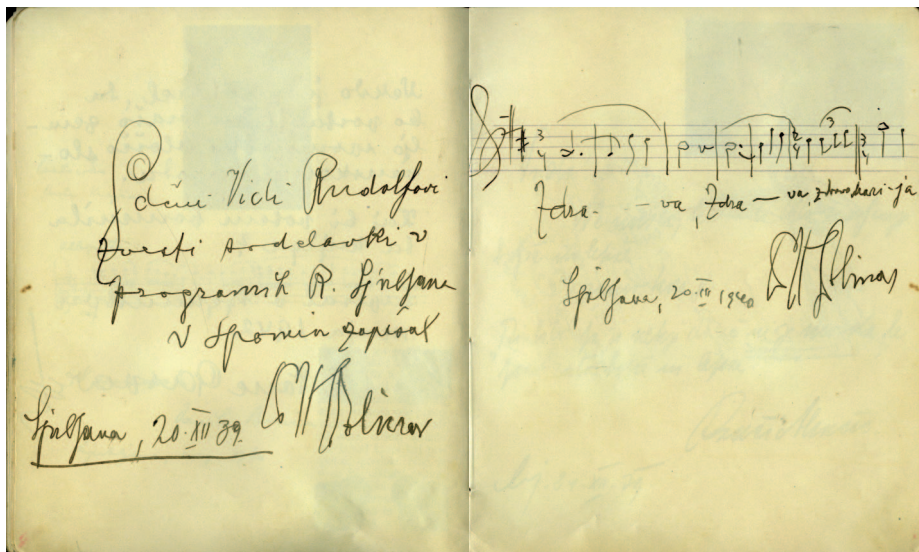 Vidi Rudolfovi
zvesti sodelavki v
programih R. Ljubljana
v spomin zapisal
Ljubljana, 20. XII 39.
3 4
3
2 4
3 4
Zdra - - - va, Zdra — va, zdrava Mari-ja
Ljubljana, 20. III 1940